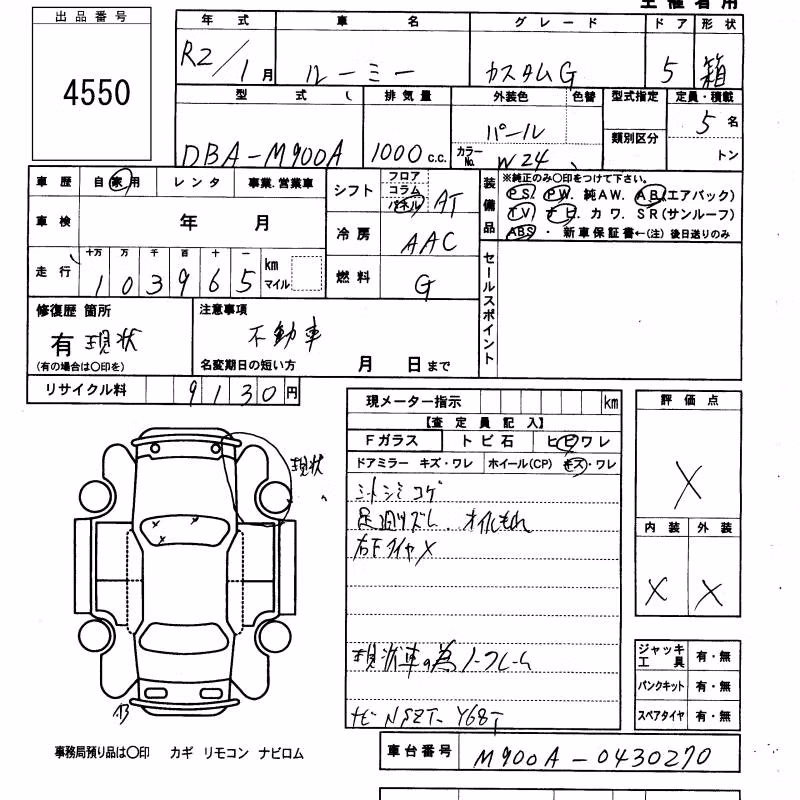 主催者用
出品番号
4550
年式 車名 グレード ドア 形状
R2/1月 ルーミー カスタムG 5 箱
型式 排気量 外装色 色替 型式指定 定員・積載
DBA-M900A 1000c.c. パール 5名
カラーNo. W24 類別区分 トン
車歴 自家用 レンタ 事業.営業車
車検 年 月
走行 十万 万 千 百 十 一 km マイル
103965
シフト フロア コラム パネル AT
冷房 AAC
燃料 G
装備品
※純正のみ〇印をつけて下さい。
PS. PW. 純AW. AB(エアバック)
TV. ナビ. カワ. SR(サンルーフ)
ABS ・ 新車保証書←(注)後日送りのみ
セールスポイント
修復歴 箇所
有 現状
(有の場合は〇印を)
注意事項
不動車
名変期日の短い方 月 日まで
リサイクル料 9130円
現メーター指示 km
【査定員記入】
Fガラス トビ石 ヒビワレ
ドアミラー キズ・ワレ ホイール(CP) キズ・ワレ
シートシミコゲ
足廻りズレ オイルもれ
右F タイヤX
現状車の為ノークレーム
ナビ NSZT-Y68T
評価点
X
内装 外装
X X
現状
ジャッキ工具 有・無
パンクキット 有・無
スペアタイヤ 有・無
事務局預り品は〇印 カギ リモコン ナビロム
車台番号 M900A-0430270